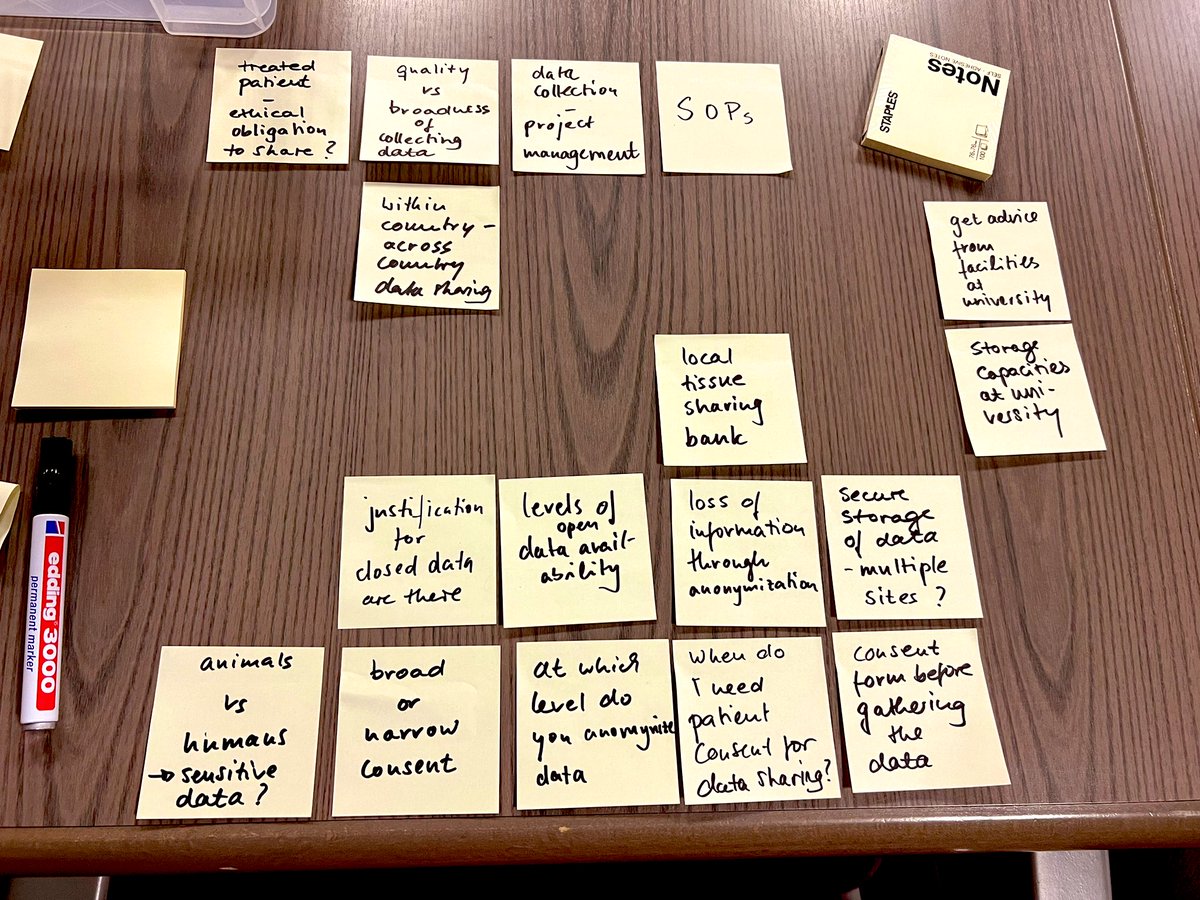 treated
patient
-
ethical
obligation
to share?
quality
vs
broadness
of
collecting
data
data
collection
-
project
management
SOPs
Notes
SELF-ADHESIVE NOTES
STAPLES
76x76mm
100
within
country -
across
country
data sharing
get advice
from
facilities
at
university
storage
capacities
at uni-
versity
local
tissue
sharing
bank
justification
for
closed data
are there
levels of
open
data avail-
ability
loss of
information
through
anonymization
secure
storage
of data
- multiple
sites?
edding 3000
permanent marker
animals
vs
humans
→ sensitive
data?
broad
or
narrow
consent
at which
level do
you anomynite
data
when do
I need
patient
consent for
data sharing?
consent
form before
gathering
the
data